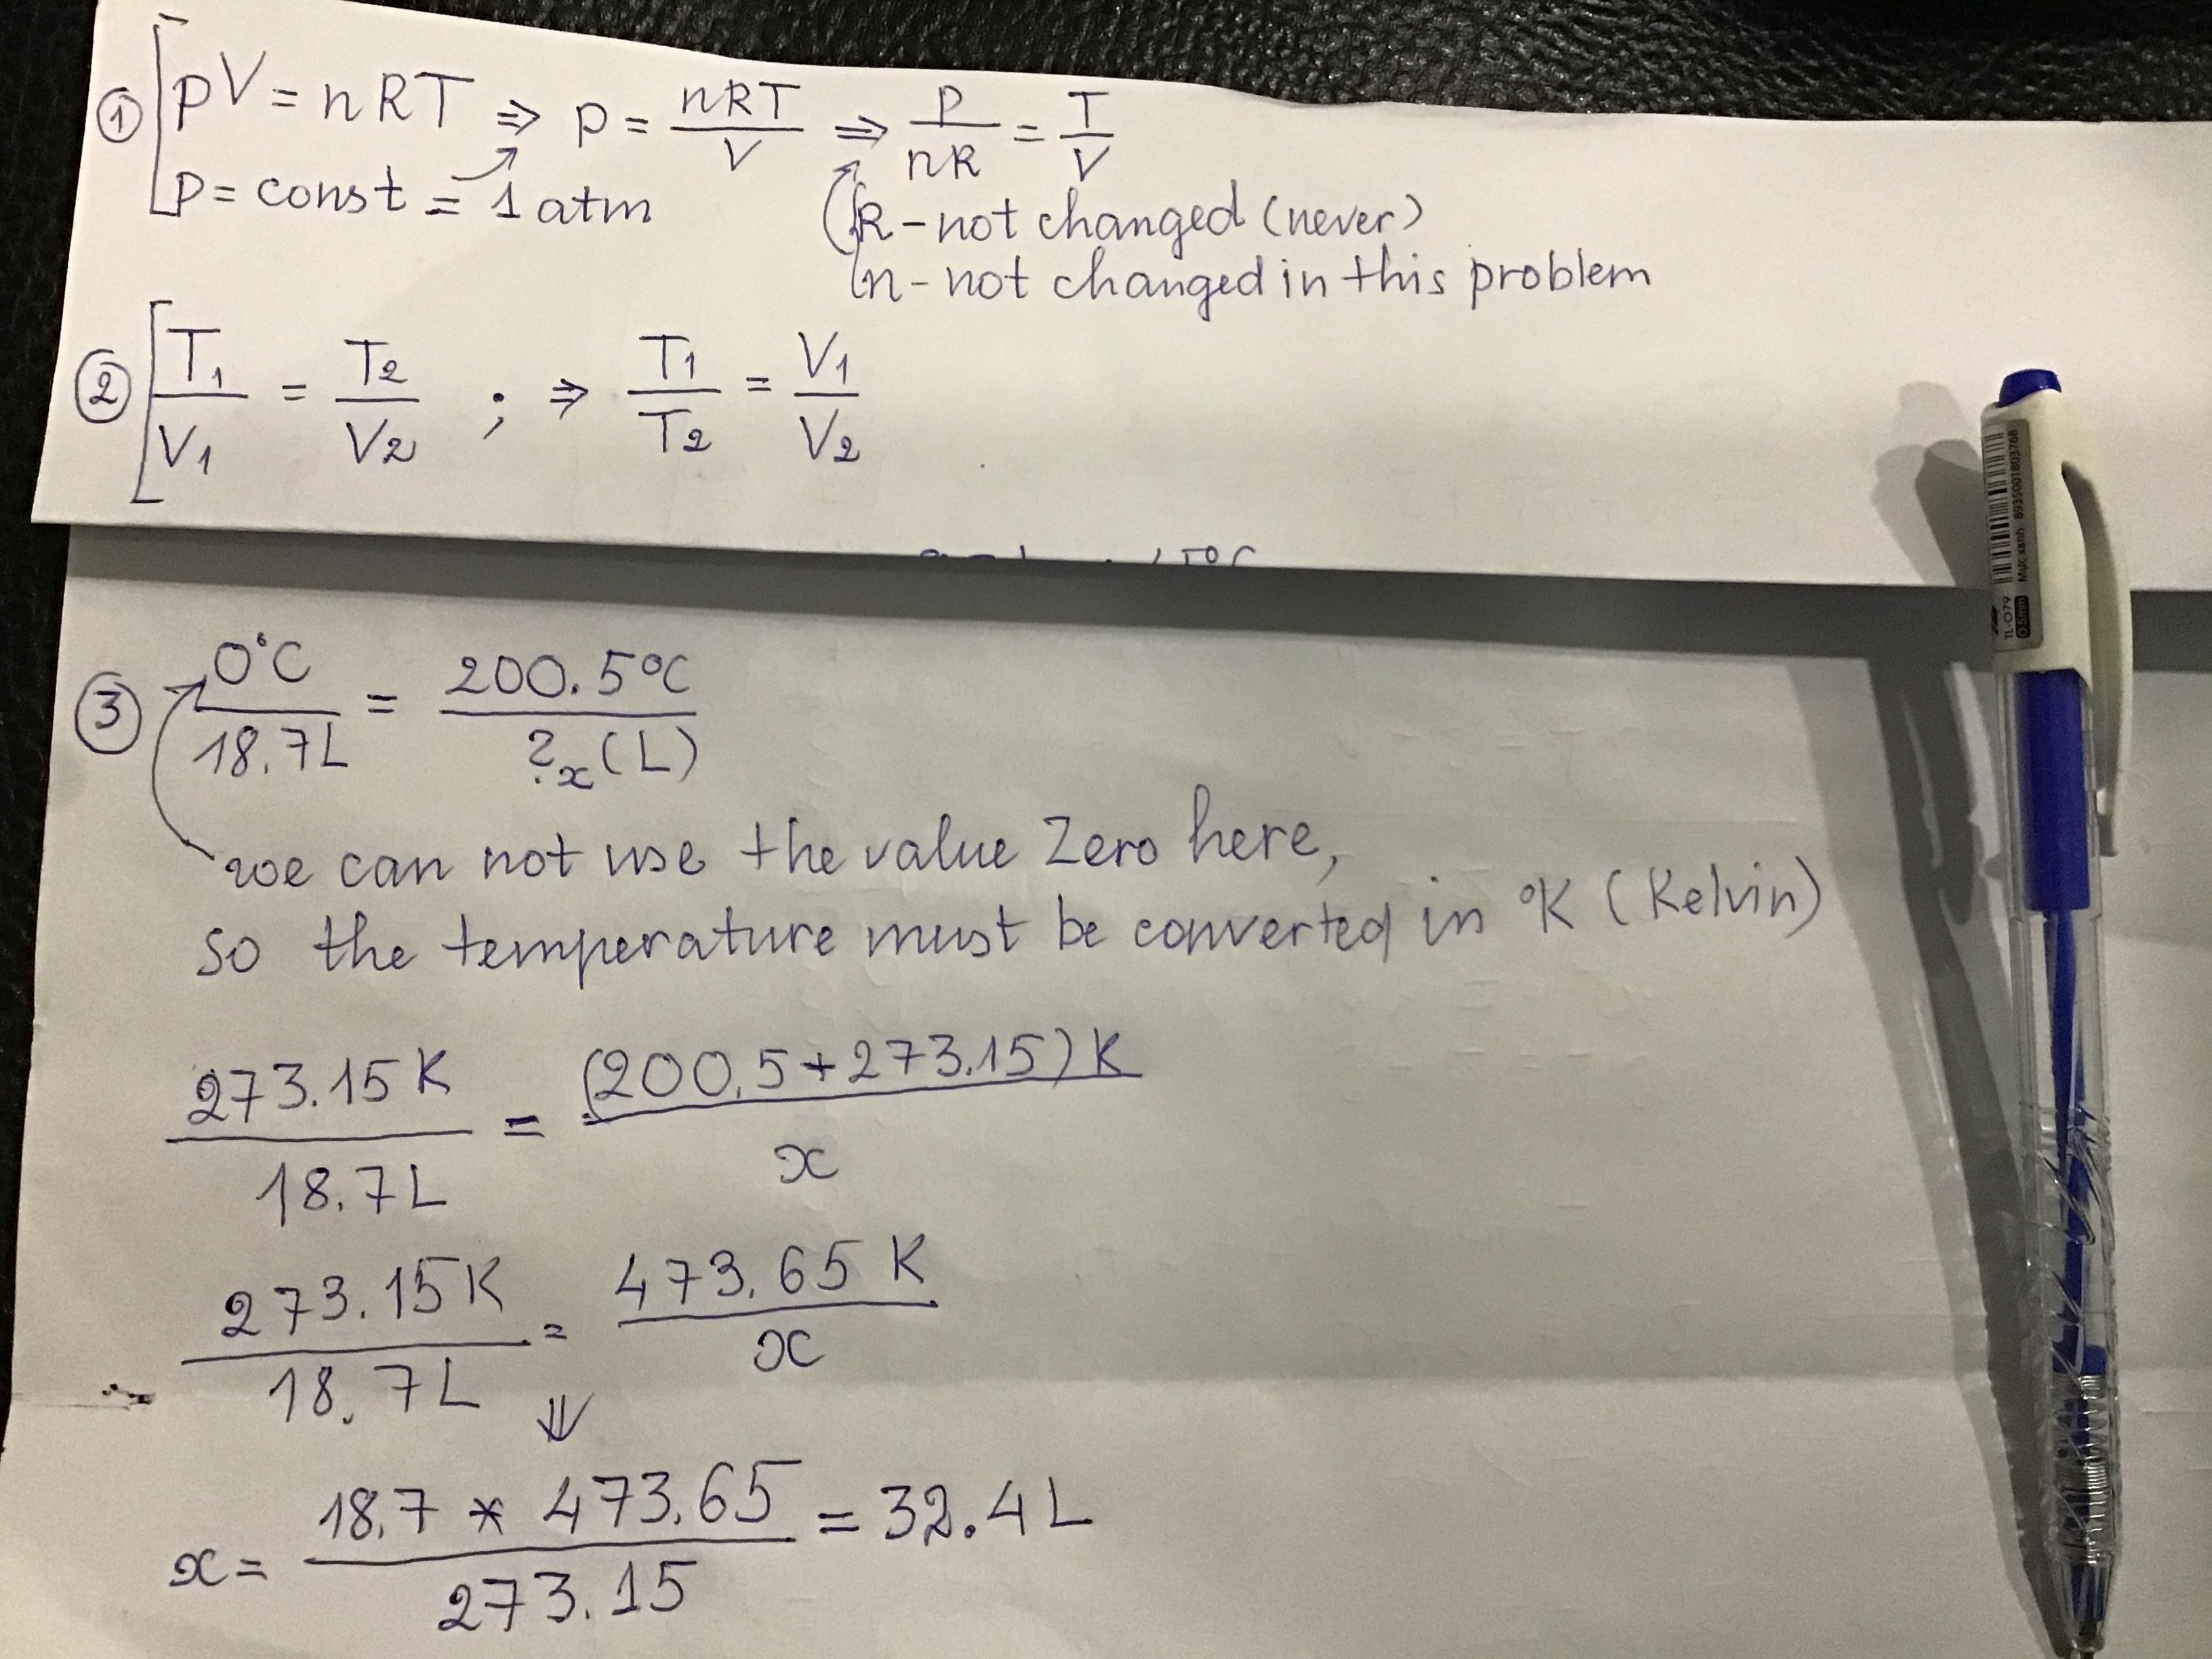 ① pV = nRT ⇒ p = nRT / V ⇒ P / nR = T / V
P = const = 1 atm
R - not changed (never)
n - not changed in this problem
② T1 / V1 = T2 / V2 ; ⇒ T1 / T2 = V1 / V2
③ 0°C / 18.7L = 200.5°C / ?x (L)
we can not use the value Zero here,
so the temperature must be converted in °K (Kelvin)
273.15 K / 18.7 L = (200.5 + 273.15) K / x
273.15 K / 18.7 L = 473.65 K / x
⇓
x = 18.7 * 473.65 / 273.15 = 32.4 L
TL-079
0.5mm
Mực xanh 8935001803768